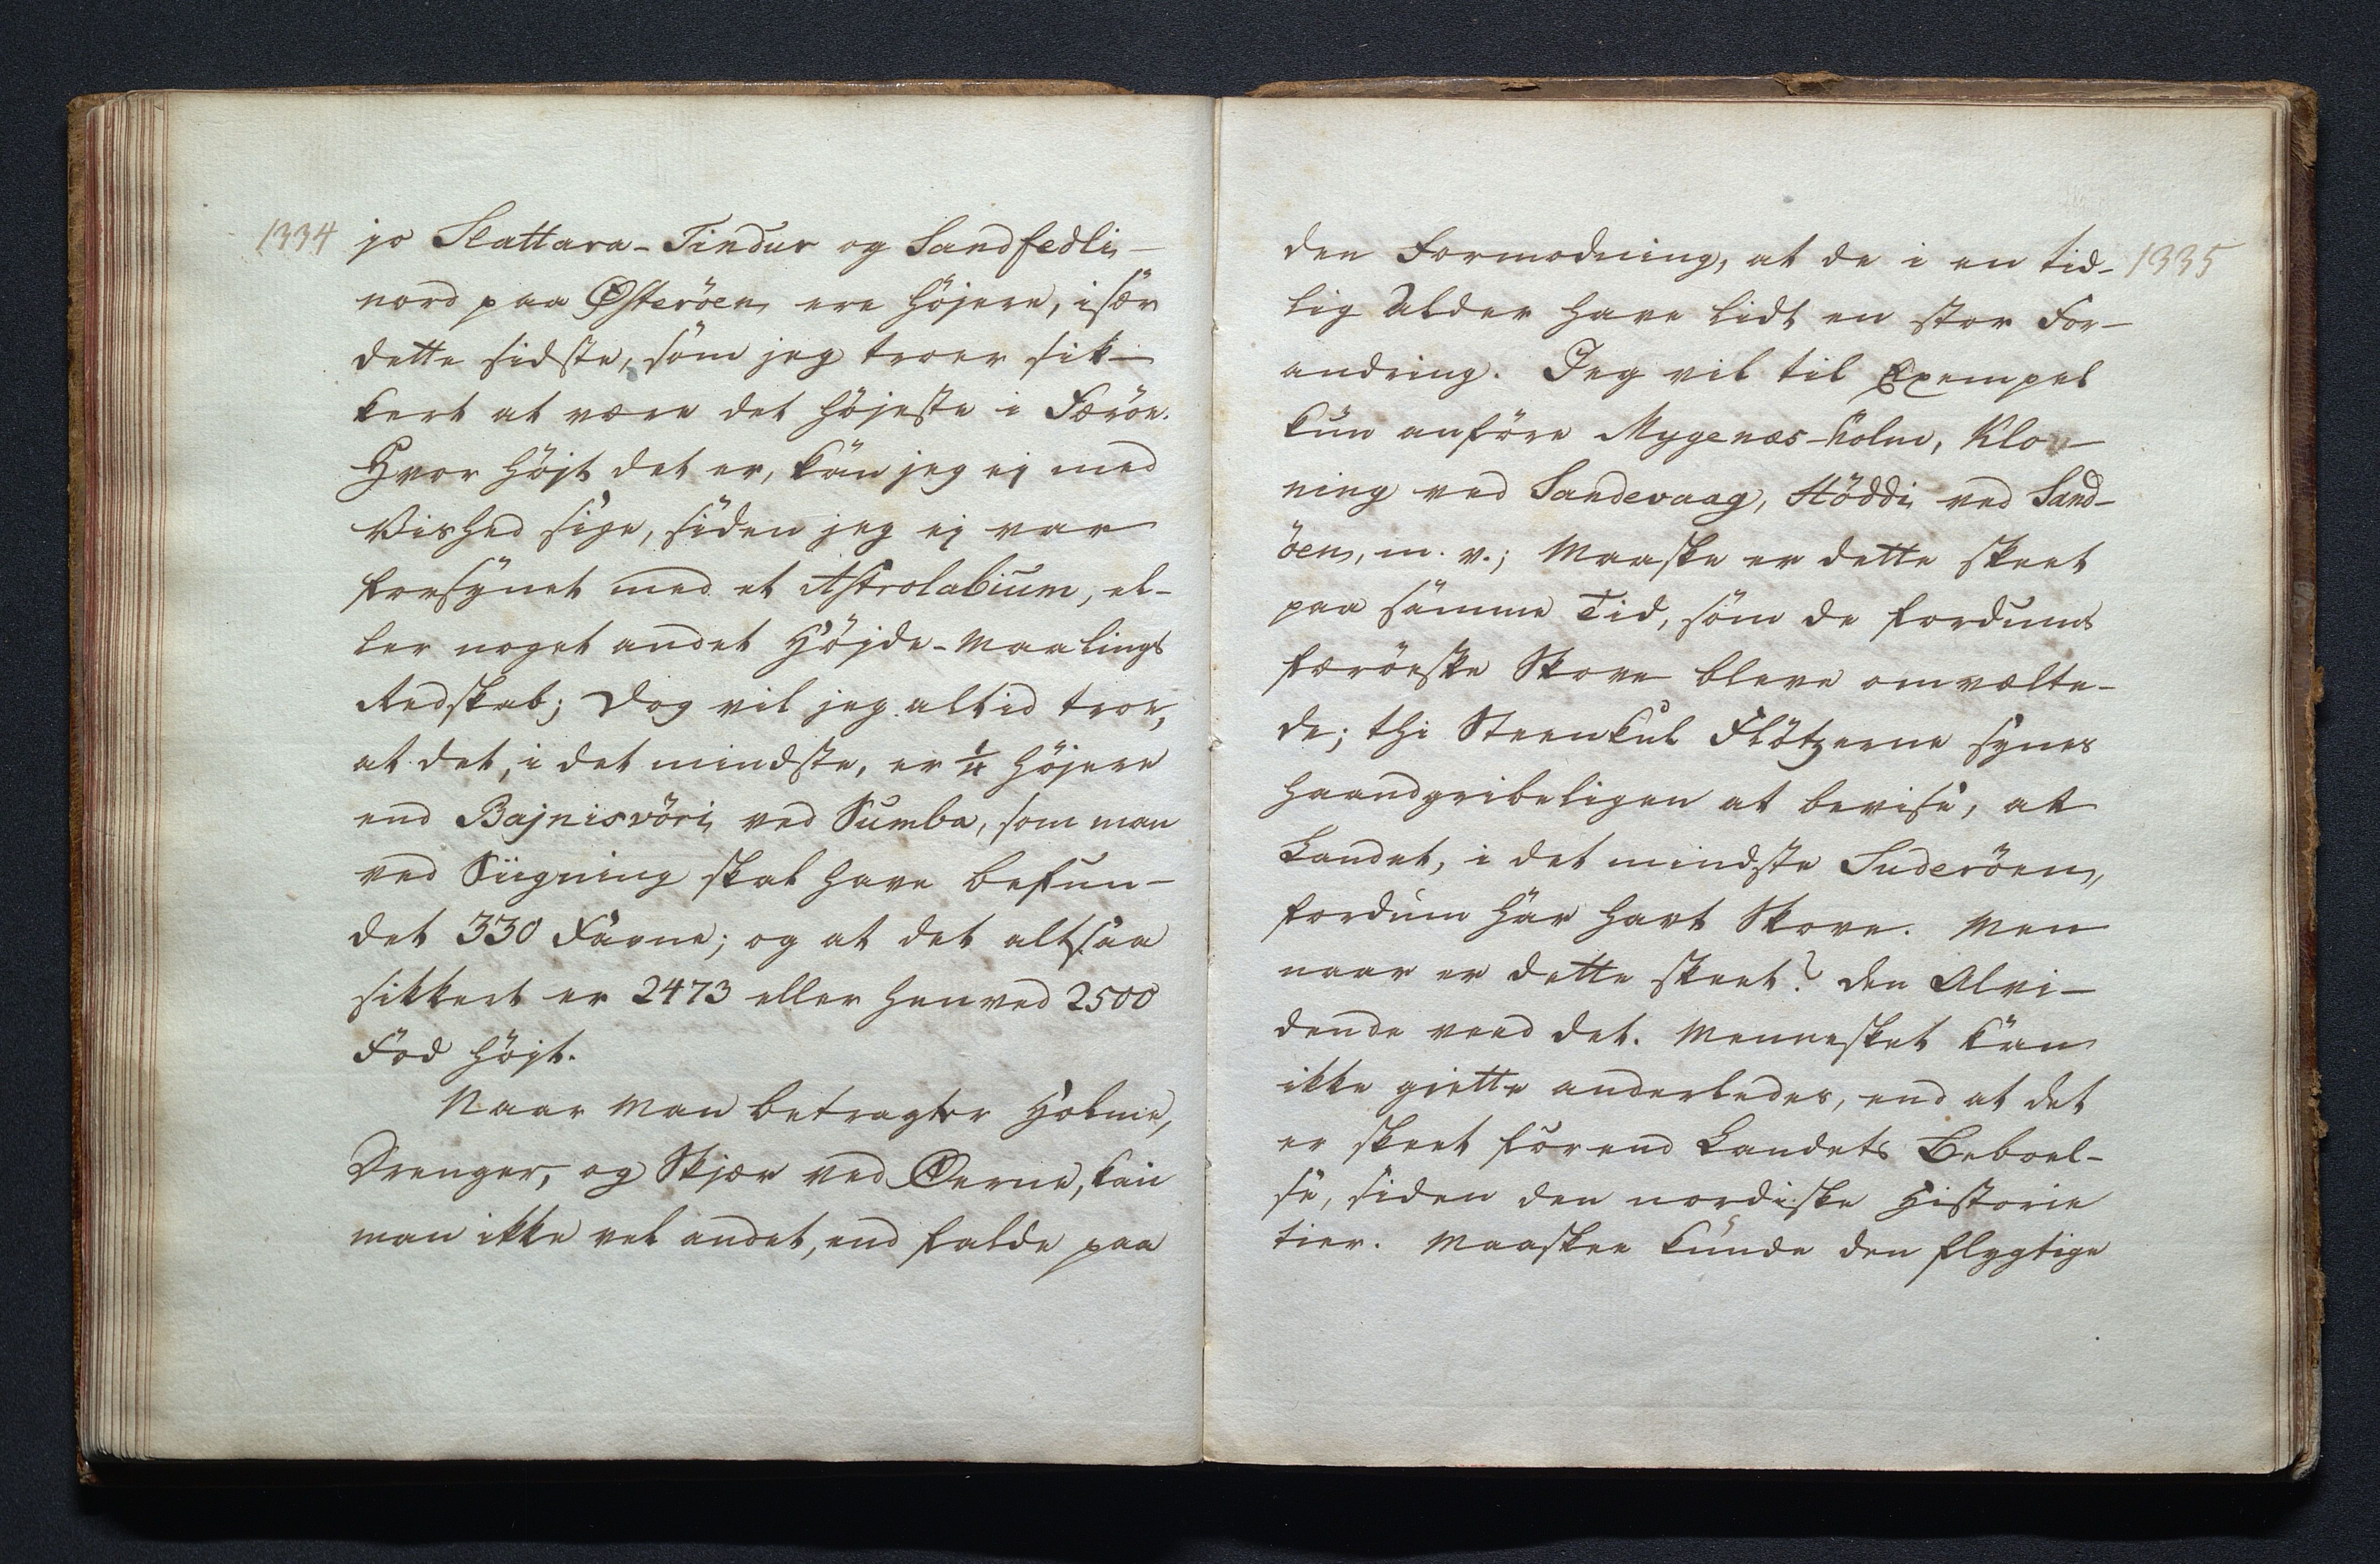 1334
jo Slattara-Tindur og Sandfedli
nord paa Østeröen, ere höjere, især
dette sidste, som jeg troer sik-
kert at være det höjeste i Færöe.
Hvor höjt det er, kan jeg ej med
Vished sige, siden jeg ej var
forsynet med et Astrolabium, el-
ler noget andet Höjde-Maalings
Redskab; Dog vil jeg altid troe,
at det, i det mindste, er 1/4 höjere
end Bajnisvöri, ved Sumbø, som man
ved Siigning skal have befun-
det 330 Favne; og at det altsaa
sikkert er 2473 eller henved 2500
Fod höjt.
Naar man betragter Holme,
Drenger, og Skjær ved Øerne, kan
man ikke vel andet, end falde paa
1335
den Formodning, at de i en tid-
lig Alder have lidt en stor For-
andring. Jeg vil til Exempel
kun anföre Mygenæs-holm, Klo-
ning ved Sandevaag, Höddi ved Sand-
öen, m. v.; Maaske er dette skeet
paa samme Tid, som de fordums
færöeske Skove bleve omvælte-
de; thi Steenkul Flötzerne synes
haandgribeligen at bevise, at
Landet, i det mindste Suderöen,
fordum har havt Skove. Men
naar er dette skeet? Den Alvi-
dende veed det. Mennesket kan
ikke giette anderledes, end at det
er skeet förend Landets Beboel-
se, siden den nordiske Historie
tier. Maaskee kunde den flygtige